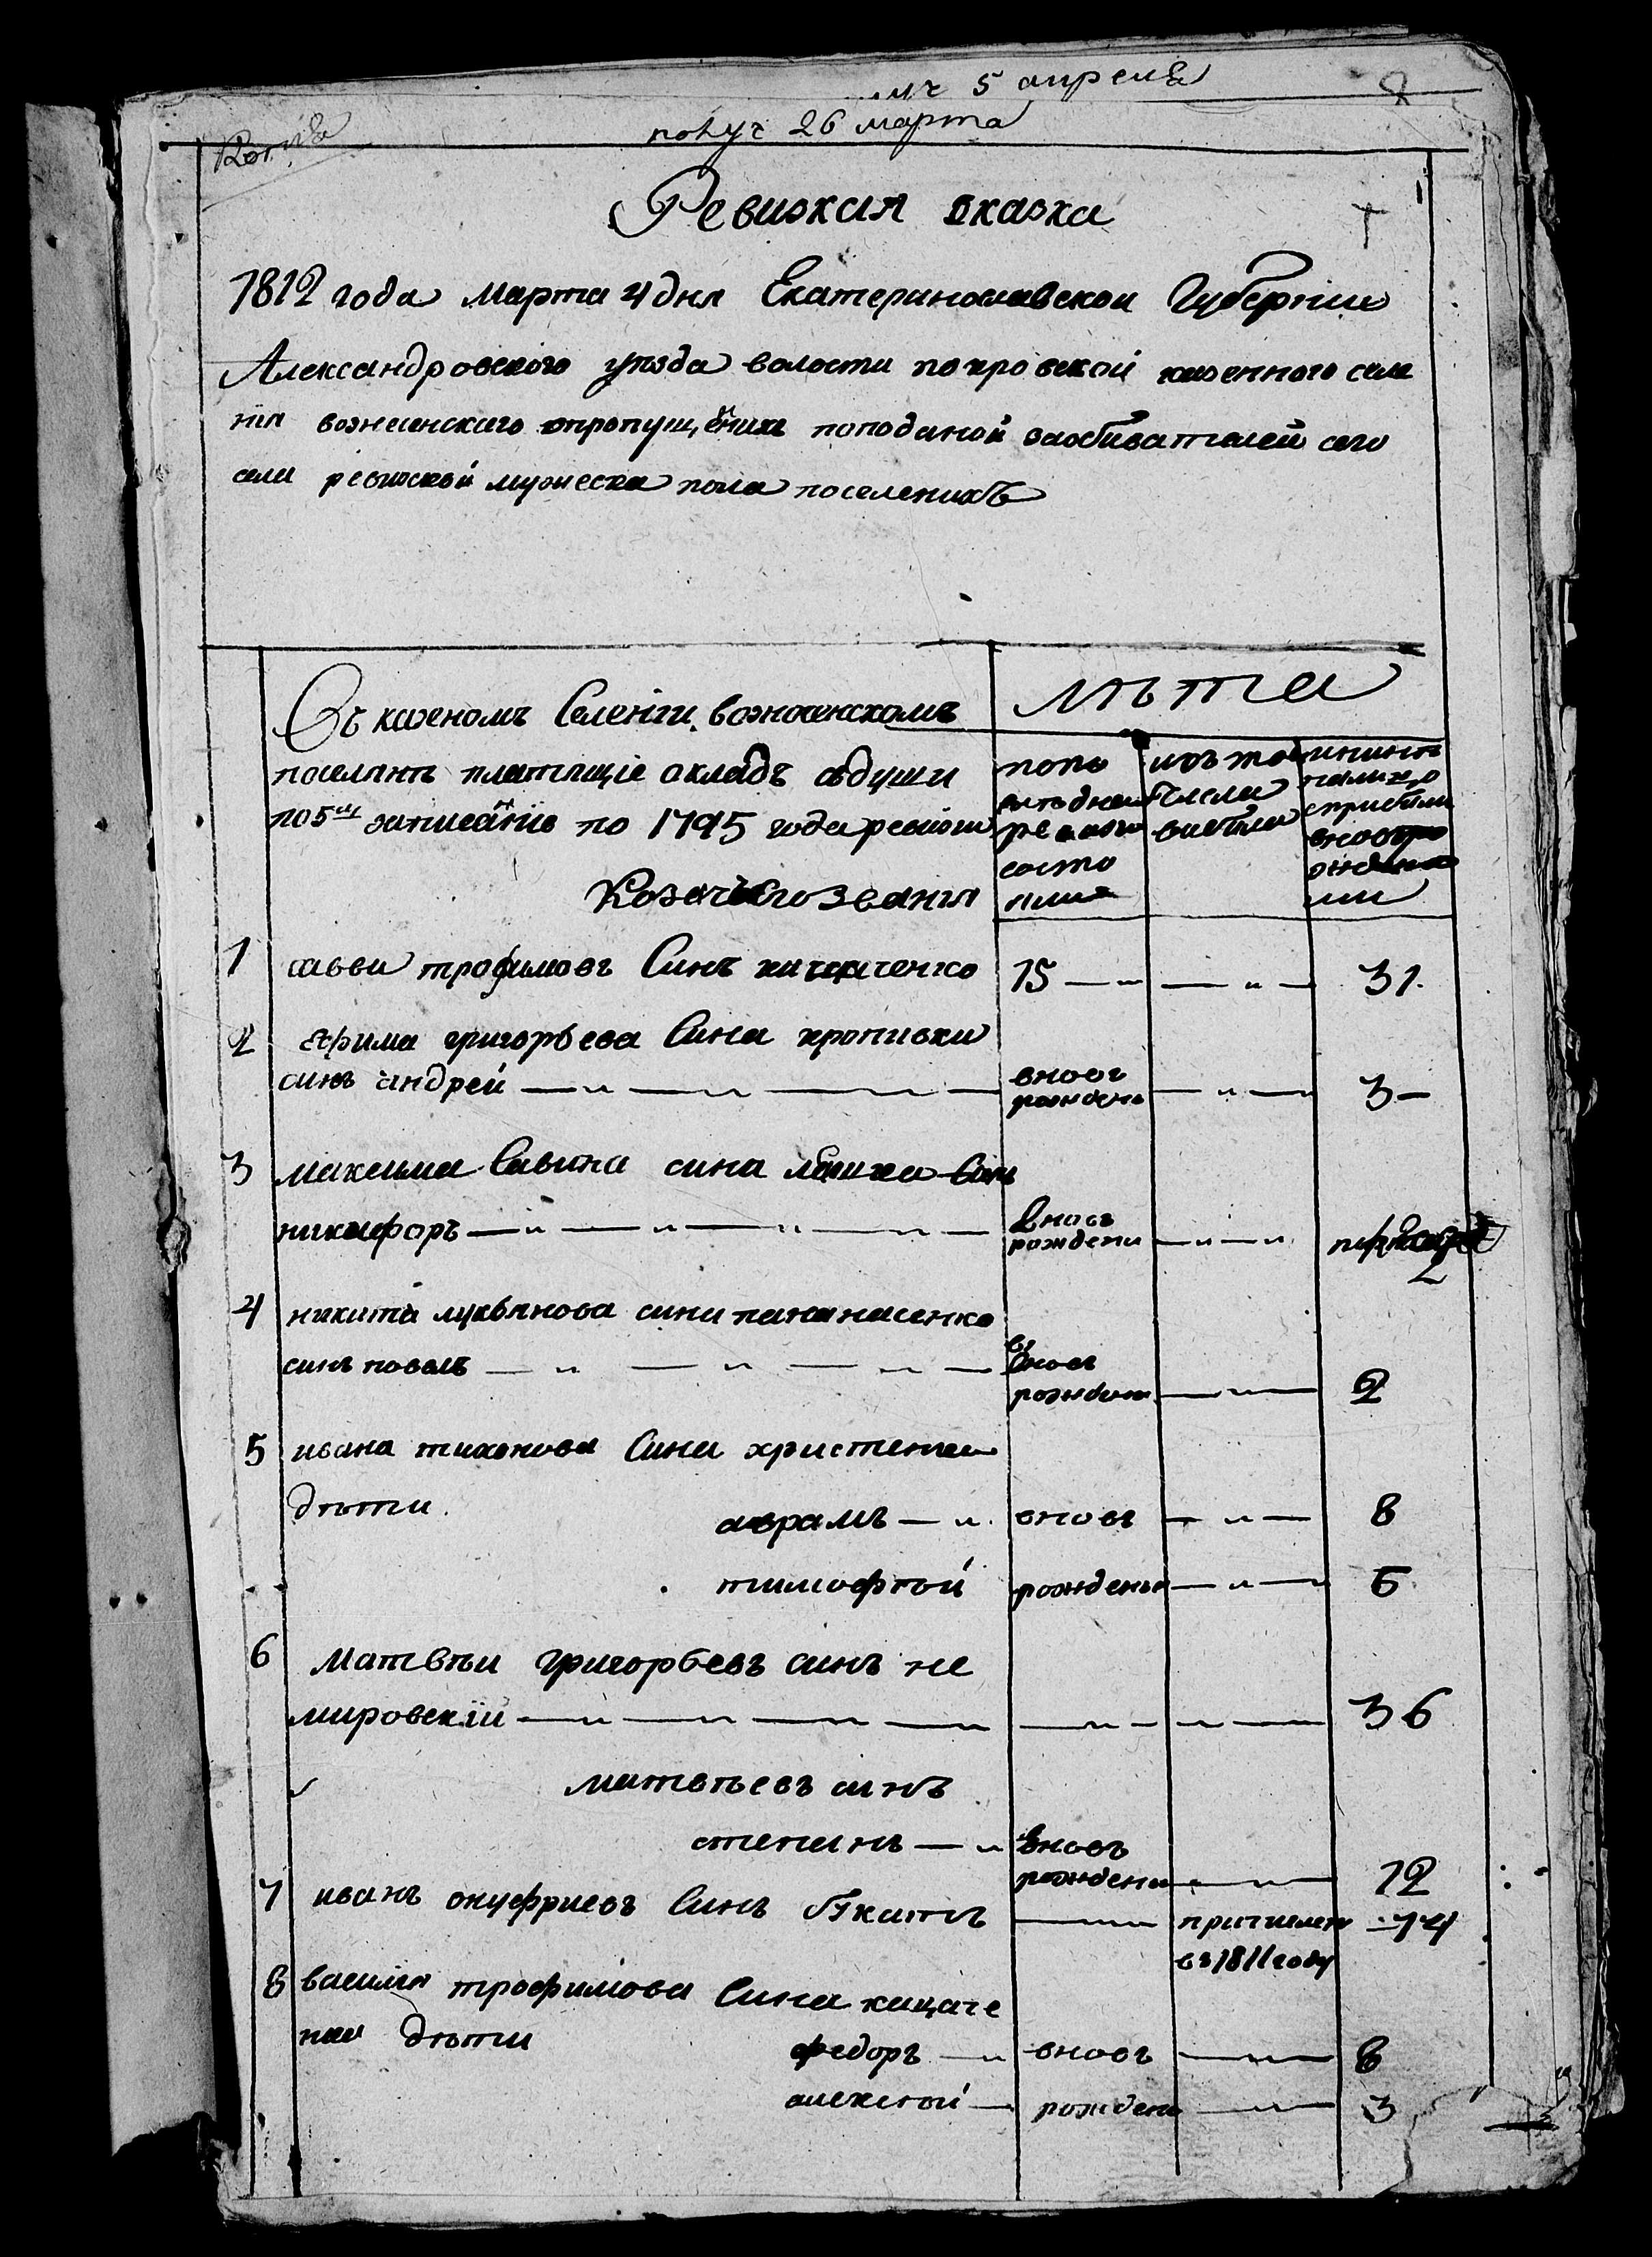 5 апреля
получ 26 марта
Копия
Ревизкая сказка
1812 года марта 4 дня Екатеринославской Губернии
Александровского уезда волости покровской казенного селе
нїя вознесенского опропущенихъ поподаной заобивателей сего
села ревизской мужеска пола поселенихъ
Въ казеномъ Селенїи вознесенскомъ
поселянъ платящїе окладъ здуши
по 5й записаніе по 1795 года ревизии
Козачего Званія
лѣта
попо
следней
ревизии
состо
яли
изъ того
числа
вибыли
инине
налицо
сприбыли
вновъ ро
жденни
ми
1 савва трофимовъ Синъ кацаченко 15 — " — " — 31.
2 Ефима григорьева Сина кропивки
синъ андрей — " — вновъ рожденъ — " — 3 —
3 максима Савина сина синъ
никифоръ — " — вновъ рождени — " — 2
4 никита лукьянова сина пананасенко
синъ павелъ — " — вновъ рожден — " — 2
5 ивана тихонова Сина христенка
дѣти.
аврамъ — " вновъ — " — 8
тимофѣй рождены — " — 5
6 Матвѣи Григорьевъ синъ не
мировскій — " — " — 36
матвѣевъ синъ
степанъ — " вновъ рождени — " — 12
7 иванъ онуфриевъ Синъ Ткачъ — " — причислен — 14
въ 1811 году
8 василия трофимова Сина кацаче
нка дѣти
федоръ — " вновъ — " — 8
алексѣй — рождени — " — 3